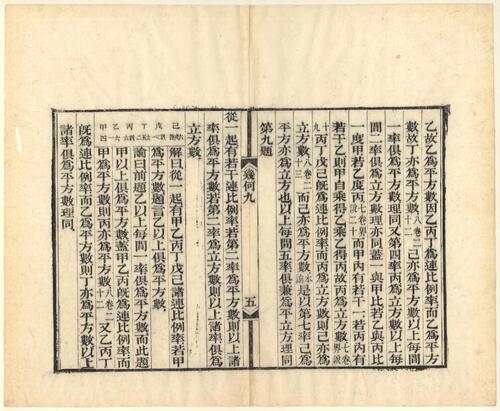 乙故乙爲平方數因乙丙丁爲連比例率而乙爲平方
數故丁亦爲平方數八卷二十二己亦爲平方數以上每間
一率俱爲平方數理同又第四率丙爲立方數以上每
間二率俱爲立方數理亦同蓋一與甲比若乙與丙比
一度甲若乙度丙七卷界說二十而甲內有若干一若丙內有
若干乙則甲自乘得乙乘乙得丙故丙爲立方數七卷界說
十九丙丁戊己旣爲連比例率而丙爲立方數則己亦爲
立方數八卷二十三而己亦爲平方數本論是以第七率己爲
平方亦爲立方也以上每間五率俱兼爲平立方理同
第九題
幾何九
五
從一起有若干連比例率若第二率爲平方數則以上諸
率俱爲平方數若第二率爲立方數則以上諸率俱爲
立方數
己
戊
丁
丙
乙
甲
解曰從一起有甲乙丙丁戊己諸連比例率若甲
爲平方數題言乙以上俱爲平方數
論曰前題乙以上每間一率俱爲平方數而此題
甲以上俱爲平方數蓋甲乙丙旣爲連比例率而
甲爲平方數則丙亦爲平方數八卷二十二又乙丙丁
旣爲連比例率而乙爲平方數則丁亦爲平方數以上
諸率俱爲平方數理同